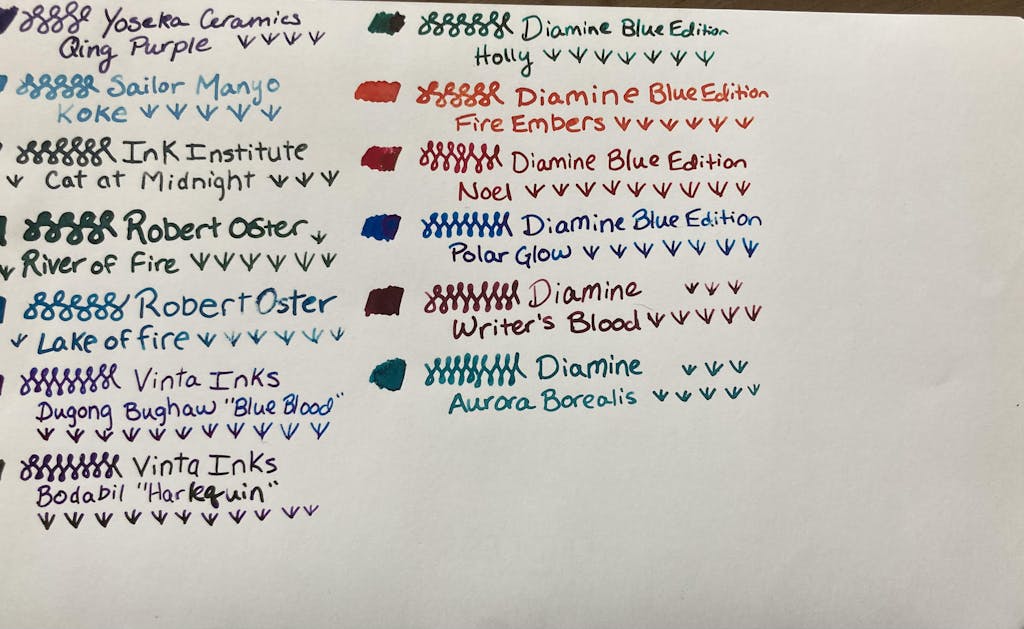 Yoseka Ceramics
Qing Purple
Sailor Manyo
Koke
Ink Institute
Cat at Midnight
Robert Oster
River of Fire
Robert Oster
Lake of fire
Vinta Inks
Dugong Bughaw "Blue Blood"
Vinta Inks
Bodabil "Harlequin"
Diamine Blue Edition
Holly
Diamine Blue Edition
Fire Embers
Diamine Blue Edition
Noel
Diamine Blue Edition
Polar Glow
Diamine
Writer's Blood
Diamine
Aurora Borealis